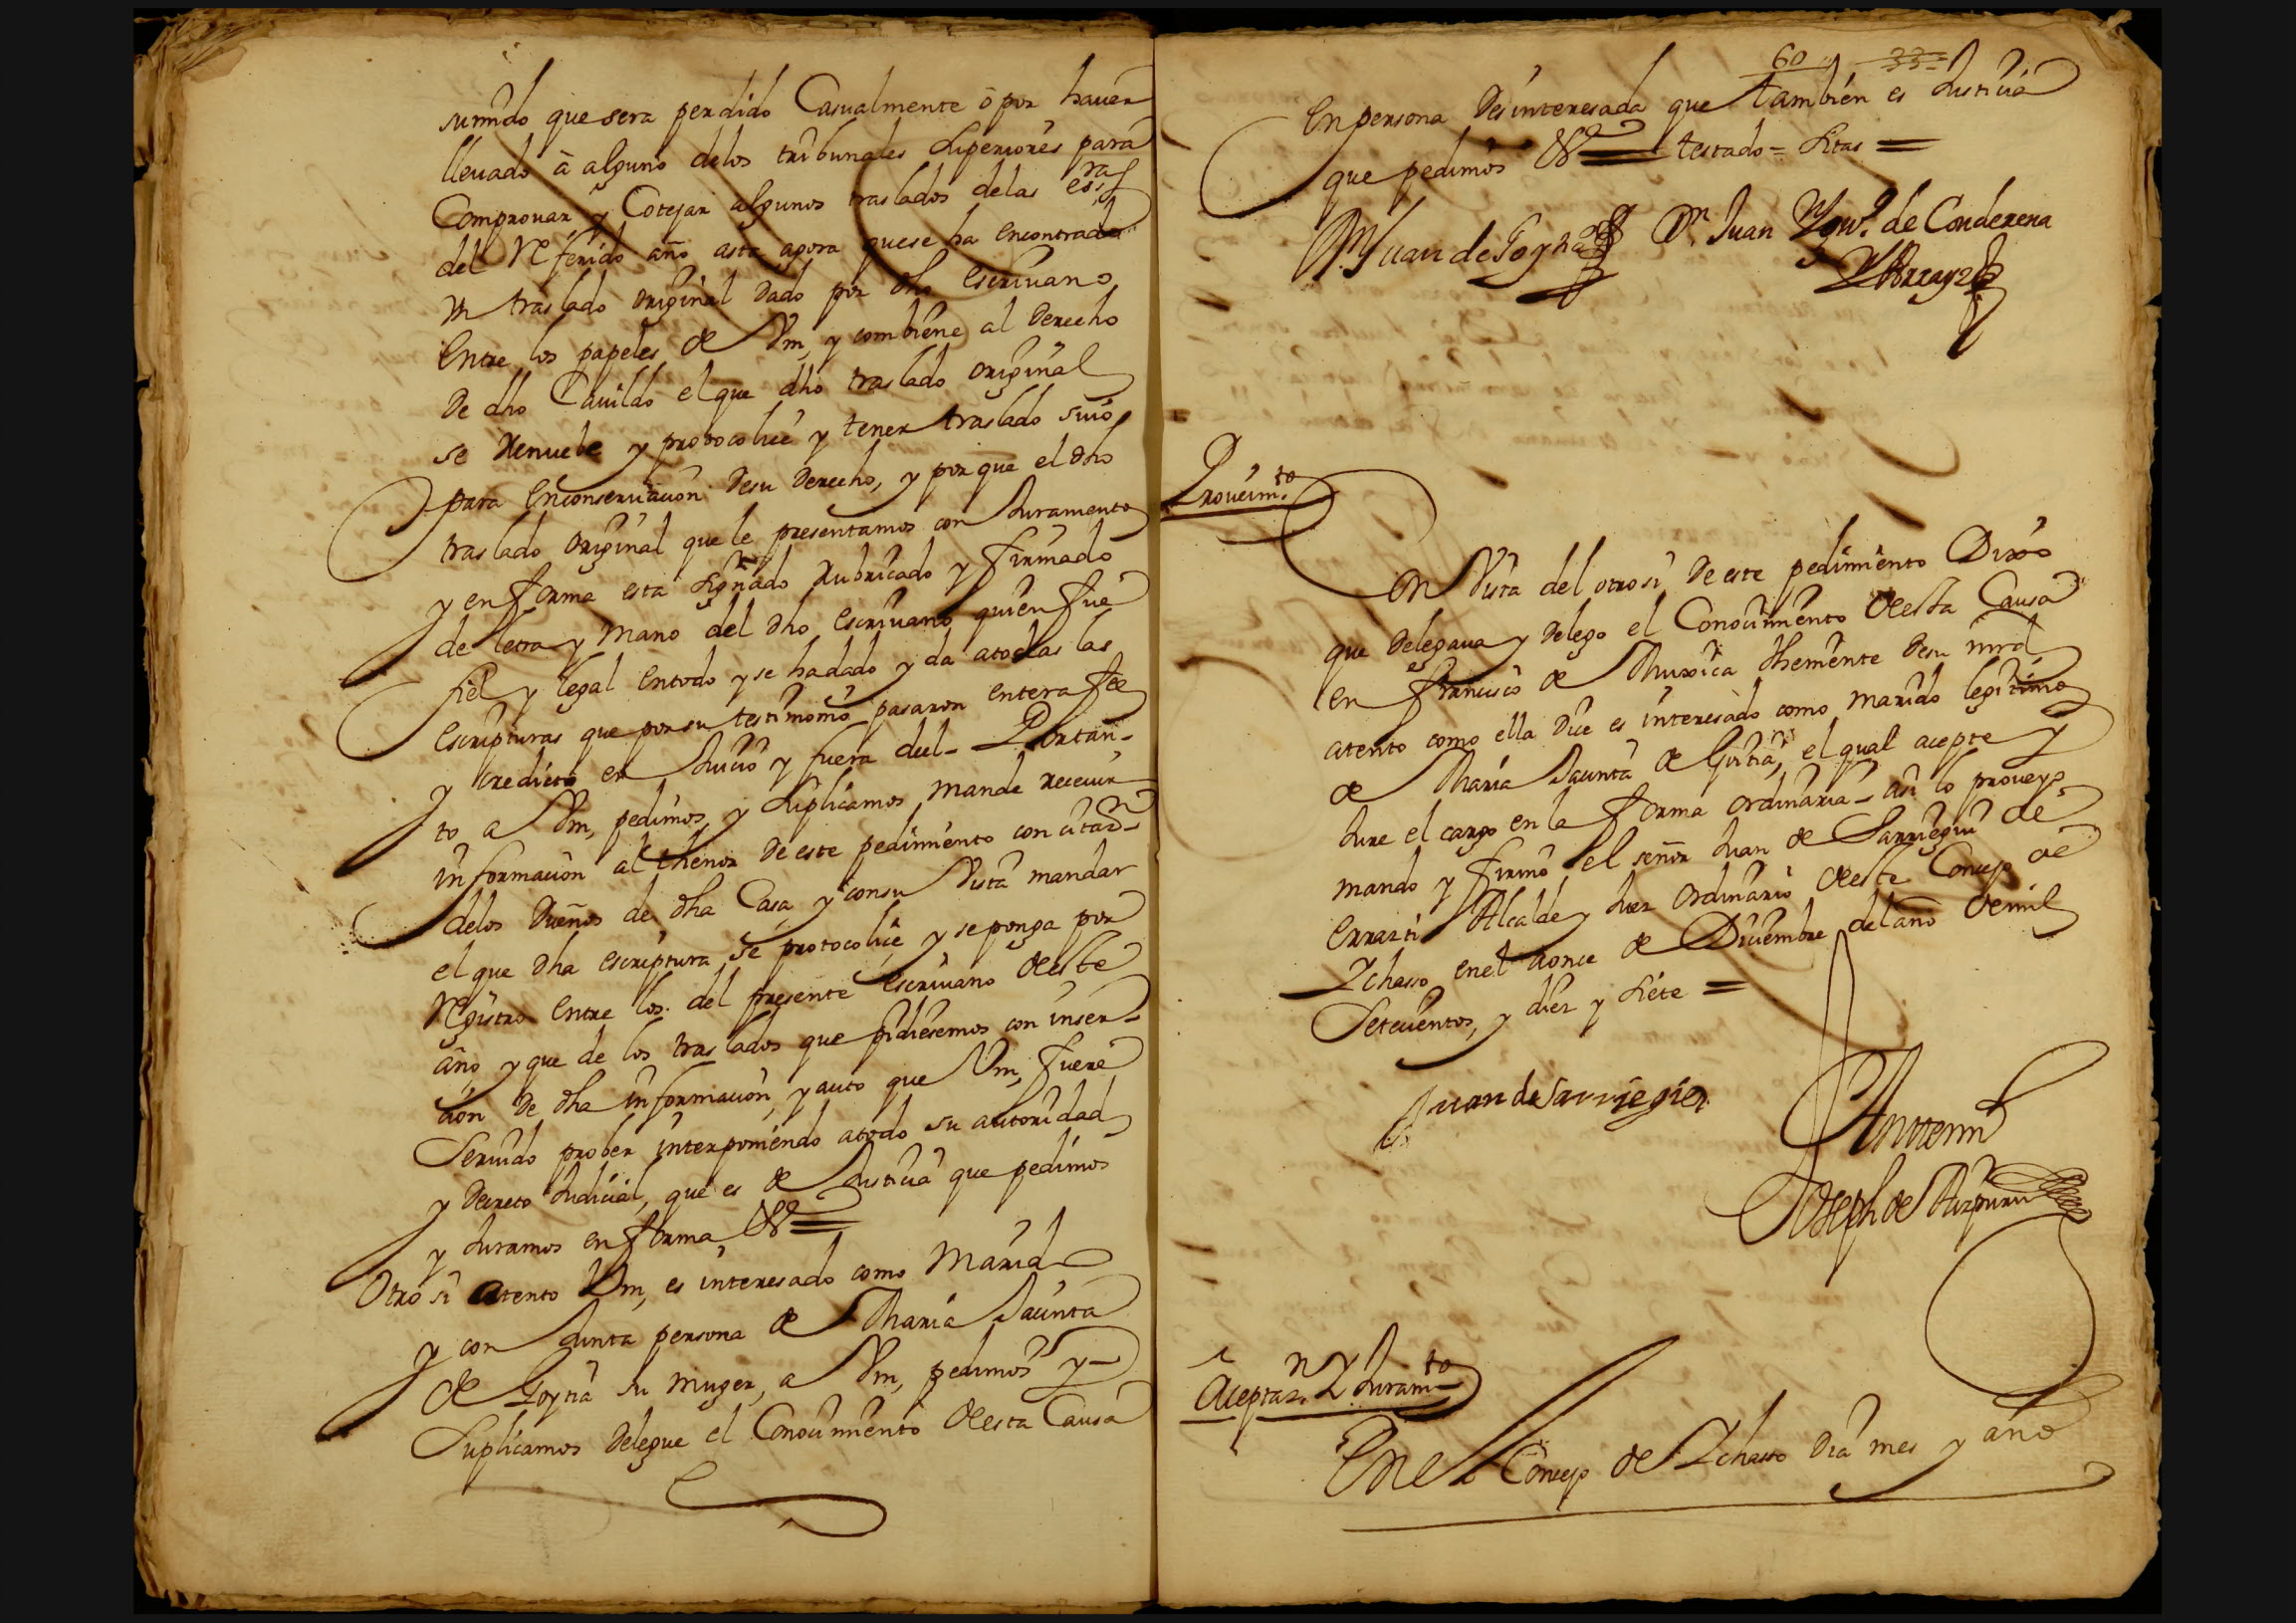 sumido que sera perdido Casualmente ô por hauer
lleuado â alguno delos tribunales Superiores para
Comprouar y Cotejar algunos traslados delas essras
del Referido año asta agora quese ha encontrado
Vn traslado original dado por dho escriuano
entre los papeles de Vm, y combiene al derecho
de dho Cauildo el que dho traslado original
se Renuebe y protocolice y tener traslado suio
para enconseruacion desu derecho, y por que el dho
traslado original que le presentamos con Juramento
y en forma esta Signado Rubricado y firmado
de letra y mano del dho escriuano quien fue
fiel y legal entodo y se hadado y da atodas las
escripturas que por su testimonio pasaron entera fee
y credicto en Juicio y fuera del = Portan-
to a Vm, pedimos, y Suplicamos mande Receuir
informacion al thenor de este pedimiento con citaon
delos Dueños de dha Casa y consu Vista mandar
el que dha escriptura se protocolice, y se ponga por
Registro entre los del presente escriuano deeste
año, y que de los traslados que pidiesemos con inser-
cion de dha informacion, y auto que Vm, fuere
Seruido prober interponiendo atodo su autoridad
y decreto Judicial, que es de Justicia que pedimos
y Juramos en forma &ª =
Otro si atento Vm, es interesado como Marido
y con Junta persona de Maria Jacinta
de Goytia su muger, a Vm, pedimos y-
Suplicamos delegue el Conocimiento deesta Causa
60 33
en persona desinteresada que tambien es Justicia
que pedimos &ª = testado = Stas =
Juan de Goytia Dn. Juan Ygno. de Conderena
Proueimto
en Vista del otrosi de este pedimiento Dixo
que delegaua y delego el Conocimiento deesta Causa
en francisco de Muxica theniente desu mrd
atento como ella dice es interesado como marido legitimo
de Maria Jacinta de Goitia, el qual acepte y
Jure el cargo en la forma ordinaria = asi lo proueyo
mando y firmo el señor Juan de Sarriegui de
errazti Alcalde y Juez Ordinario deeste Concejo de
Ychasso enel a once de Diciembre del año demil
Setecientos, y diez y Siete =
Juan de Sarriegui
Antemi
Joseph de Aizpuru
Aceptazn. Y Juramto
En el Concejo de Ychasso dia mes y año